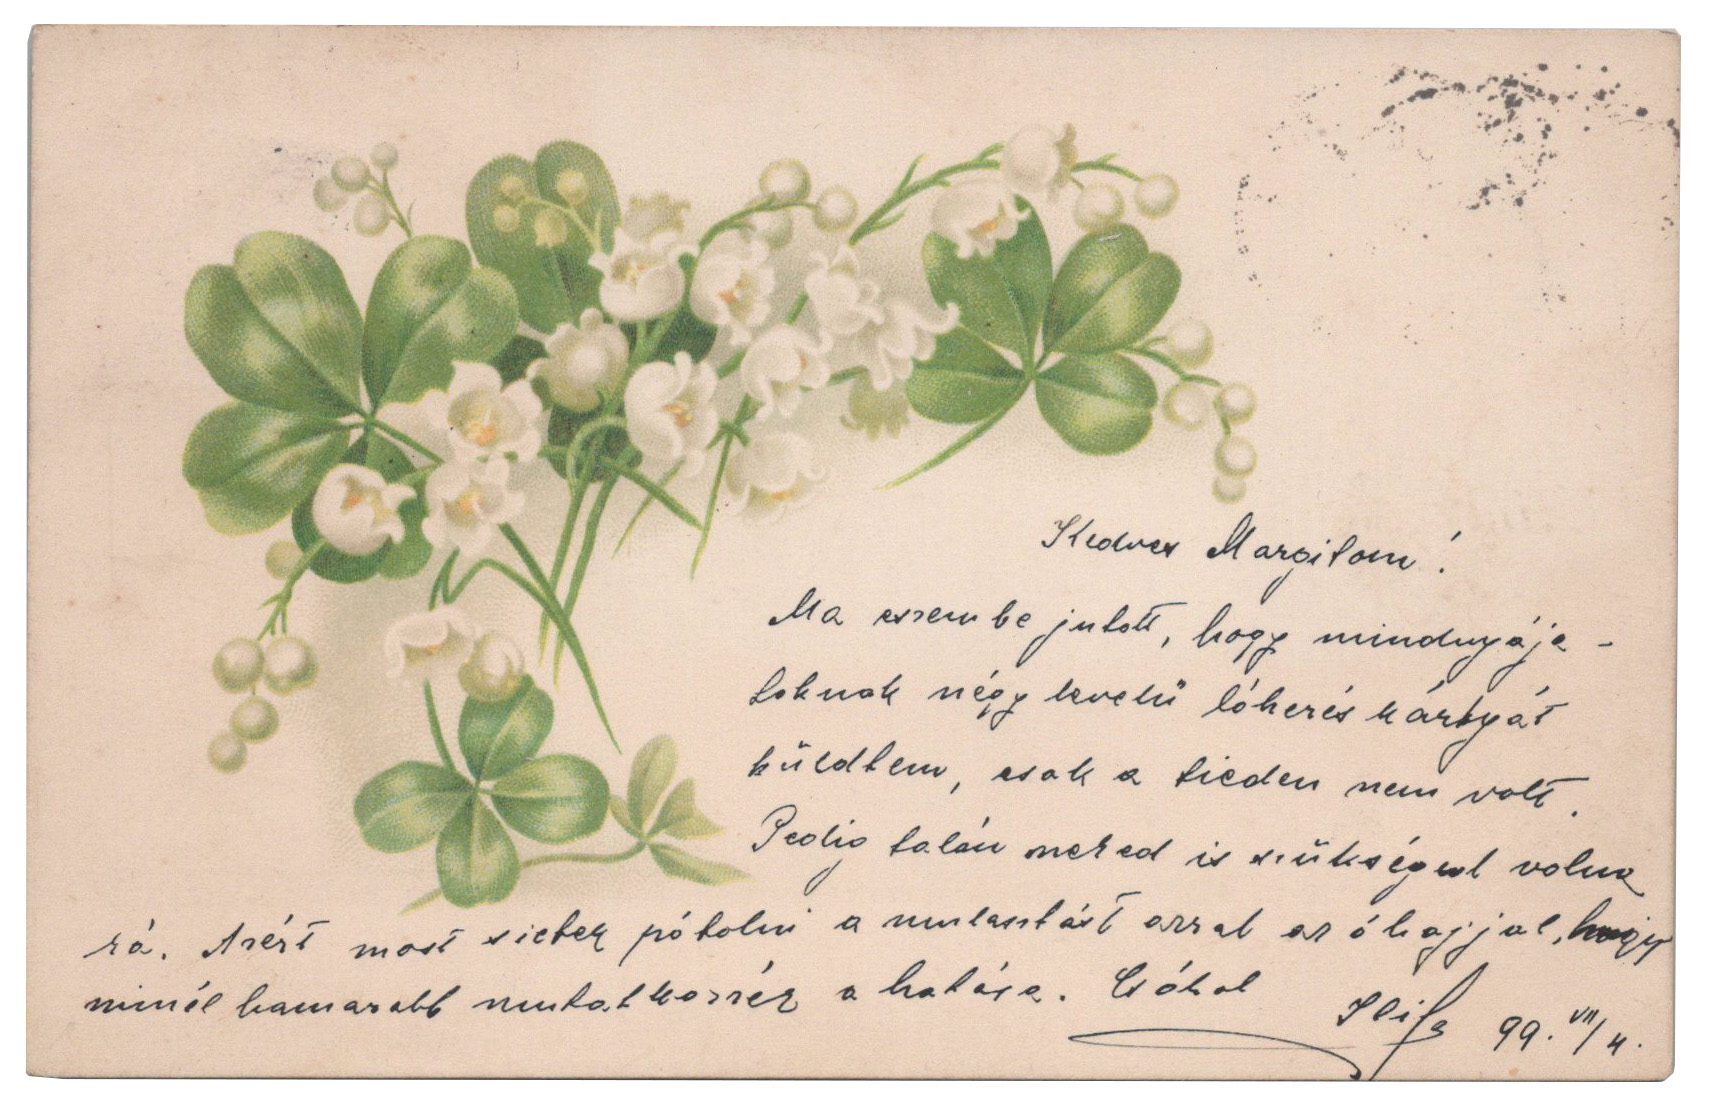 Kedves Margitom!
Ma eszembe jutott, hogy mindnyája-
toknak négy levelű lóherés kártyát
küldtem, csak a tieden nem volt.
Pedig talán neked is szükséged volna
rá. Azért most sietek pótolni a mulasztást azzal az óhajjal, hogy
minél hamarabb mutatkozzék a hatása. Csókol
99. VII/4.